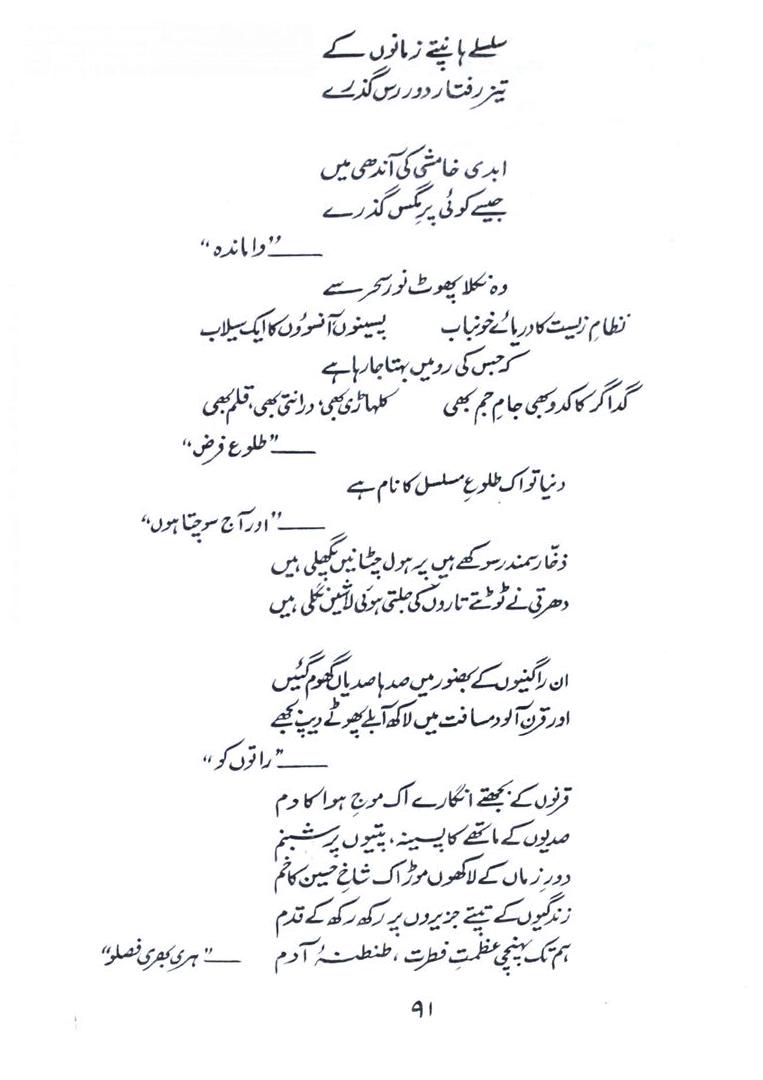 سلسلے ہانپتے زمانوں کے
تیز رفتار دور رس گذرے
ابدی خامشی کی آندھی میں
جیسے کوئی پرِ مگس گذرے
——”واماندہ“
وہ نکلا پھوٹ نورِ سحر سے
نظامِ زیست کا دریائے خونناب پسینوں آنسوؤں کا ایک سیلاب
کہ جس کی رو میں بہتا جا رہا ہے
گداگر کا کدو بھی جامِ جم بھی کلہاڑی بھی، درانتی بھی، قلم بھی
——”طلوعِ فرض“
دنیا تو اک طلوعِ مسلسل کا نام ہے
——”اور آج سوچتا ہوں“
ذخّار سمندر سوکھے ہیں پر ہول چٹانیں پگھلی ہیں
دھرتی نے ٹوٹتے تاروں کی جلتی ہوئی لاشیں نگلی ہیں
ان راگنیوں کے بھنور میں صدہا صدیاں گھوم گئیں
اور قرن آلود مسافت میں لاکھ آبلے پھوٹے دیپ بجھے
——”راتوں کو“
قرنوں کے بجھتے انگارے اک موجِ ہوا کا دم
صدیوں کے ماتھے کا پسینہ، پتیوں پر شبنم
دورِ زماں کے لاکھوں موڑ اک شاخِ حسیں کا خم
زندگیوں کے تپتے جزیروں پر رکھ رکھ کے قدم
ہم تک پہنچی عظمتِ فطرت، طنطنۂ آدم ——”ہری بھری فصلو“
۹۱